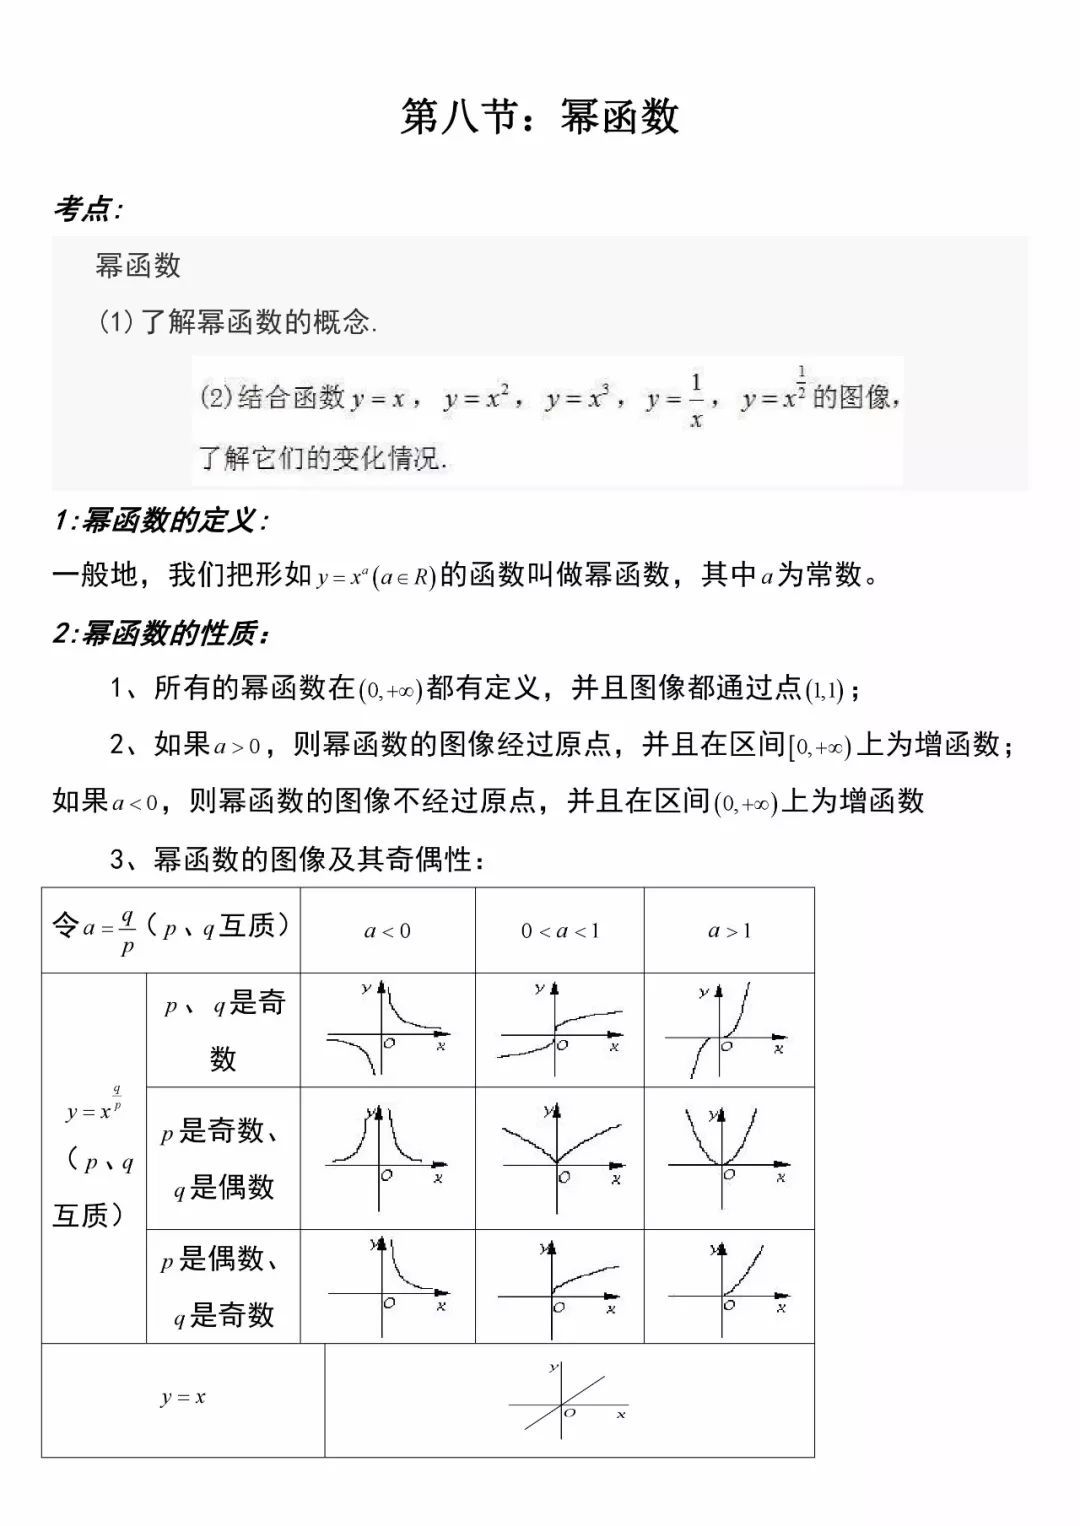 第八节：幂函数
考点:
幂函数
(1)了解幂函数的概念.
(2)结合函数 y = x，y = x²，y = x³，y = 1/x，y = x^(1/2) 的图像，
了解它们的变化情况.
1:幂函数的定义:
一般地，我们把形如 y = x^a (a ∈ R)的函数叫做幂函数，其中 a 为常数。
2:幂函数的性质：
1、所有的幂函数在(0,+∞)都有定义，并且图像都通过点(1,1)；
2、如果 a > 0，则幂函数的图像经过原点，并且在区间[0,+∞)上为增函数；
如果 a < 0，则幂函数的图像不经过原点，并且在区间(0,+∞)上为增函数
3、幂函数的图像及其奇偶性：
令 a = q/p（p、q 互质） a < 0 0 < a < 1 a > 1
y = x^(q/p)
（p、q
互质）
p、q 是奇
数
y O x
y O x
y O x
p 是奇数、
q 是偶数
y O x
y O x
y O x
p 是偶数、
q 是奇数
y O x
y O x
y O x
y = x
y O x